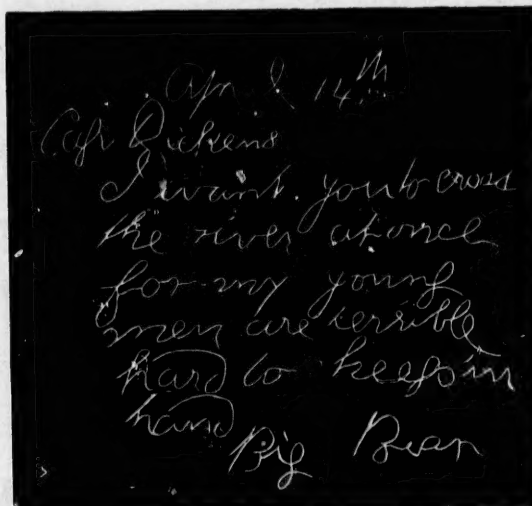 April 14th
Capt Dickens
I want. you to cross
the river at once
for my young
men are terrible
hard to keep in
hand
Big Bear